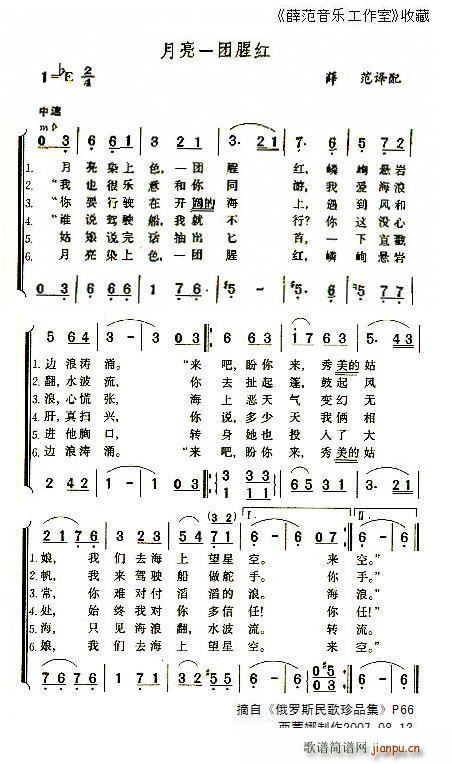 《薛范音乐工作室》收藏
月亮一团腥红
1=♭E 2/4
薛 范译配
中速
mp
0 3 6 6 6 1 3 2 1 3· 2 1 7· 6 5 7 2
1. 月 亮染上 色,一团 腥 红,嶙峋悬岩
2. “我 也很乐 意和你 同 游,我 爱海浪
3. “你 要行驶 在开阔的 海 上,遇 到风和
4. “谁 说驾驶 船,我就 不 行?你 这没心
5. 姑 娘说完 话抽出 匕 首,一 下直戳
6. 月 亮染上 色,一团 腥 红,嶙峋悬岩
0 3 6 6 6 1 7 6 7· 6 #5 #5 3 5
5 6 4 3 — 3 0 3 6 6 1 7 6 3 5· 4 3
1. 边 浪涛 涌。 “来 吧,盼你 来, 秀 美的姑
2. 翻,水波 流, 你 去 扯起 篷, 鼓 起 风
3. 浪,心慌 张, 海 上恶天 气 变幻 无
4. 肝,真扫 兴, 你 说,多少 天 我 俩 相
5. 进他胸 口, 转 身她也 投 入了 大
6. 边 浪涛 涌。 “来 吧,盼你 来, 秀 美的姑
2 4 2 1 — 1 0 3
2 1 7 6 3 2 3 5 4 2 1 7 6
1. 娘, 我 们去海 上 望星 空。 来 空。”
2. 帆, 我 来驾驶 船 做舵 手。 你 手。”
3. 常, 你 难对付 滔滔的 浪。 海 浪。”
4. 处, 始 终我对 你 多信 任! 你 任!”
5. 海, 只 见海浪 翻,水波 流。 转 流。”
6. 娘, 我 们去海 上 望星 空。 来 空。”
摘自《俄罗斯民歌珍品集》P66
西蒙娜制作2007-08-13
歌谱简谱网
jianpu.cn